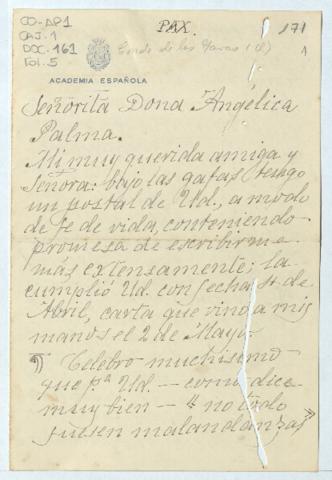 CO-AP1
CAJ. 1
DOC. 161
Fol. 5
PAX.
171
1
Conde de las Navas (4)
ACADEMIA ESPAÑOLA
Señorita Dona Angélica
Palma.
Mi muy querida amiga y
Señora: bajo las gafas tengo
un postal de Ud., a modo
de fe de vida, conteniendo
promesa de escribirme
más extensamente; la
cumplió Ud. con fecha de
Abril, carta que vino a mis
manos el 2 de Mayo.
¶ Celebro muchisimo
que pa. Ud. — como dice
muy bien — "no todo
fuesen malandanzas"